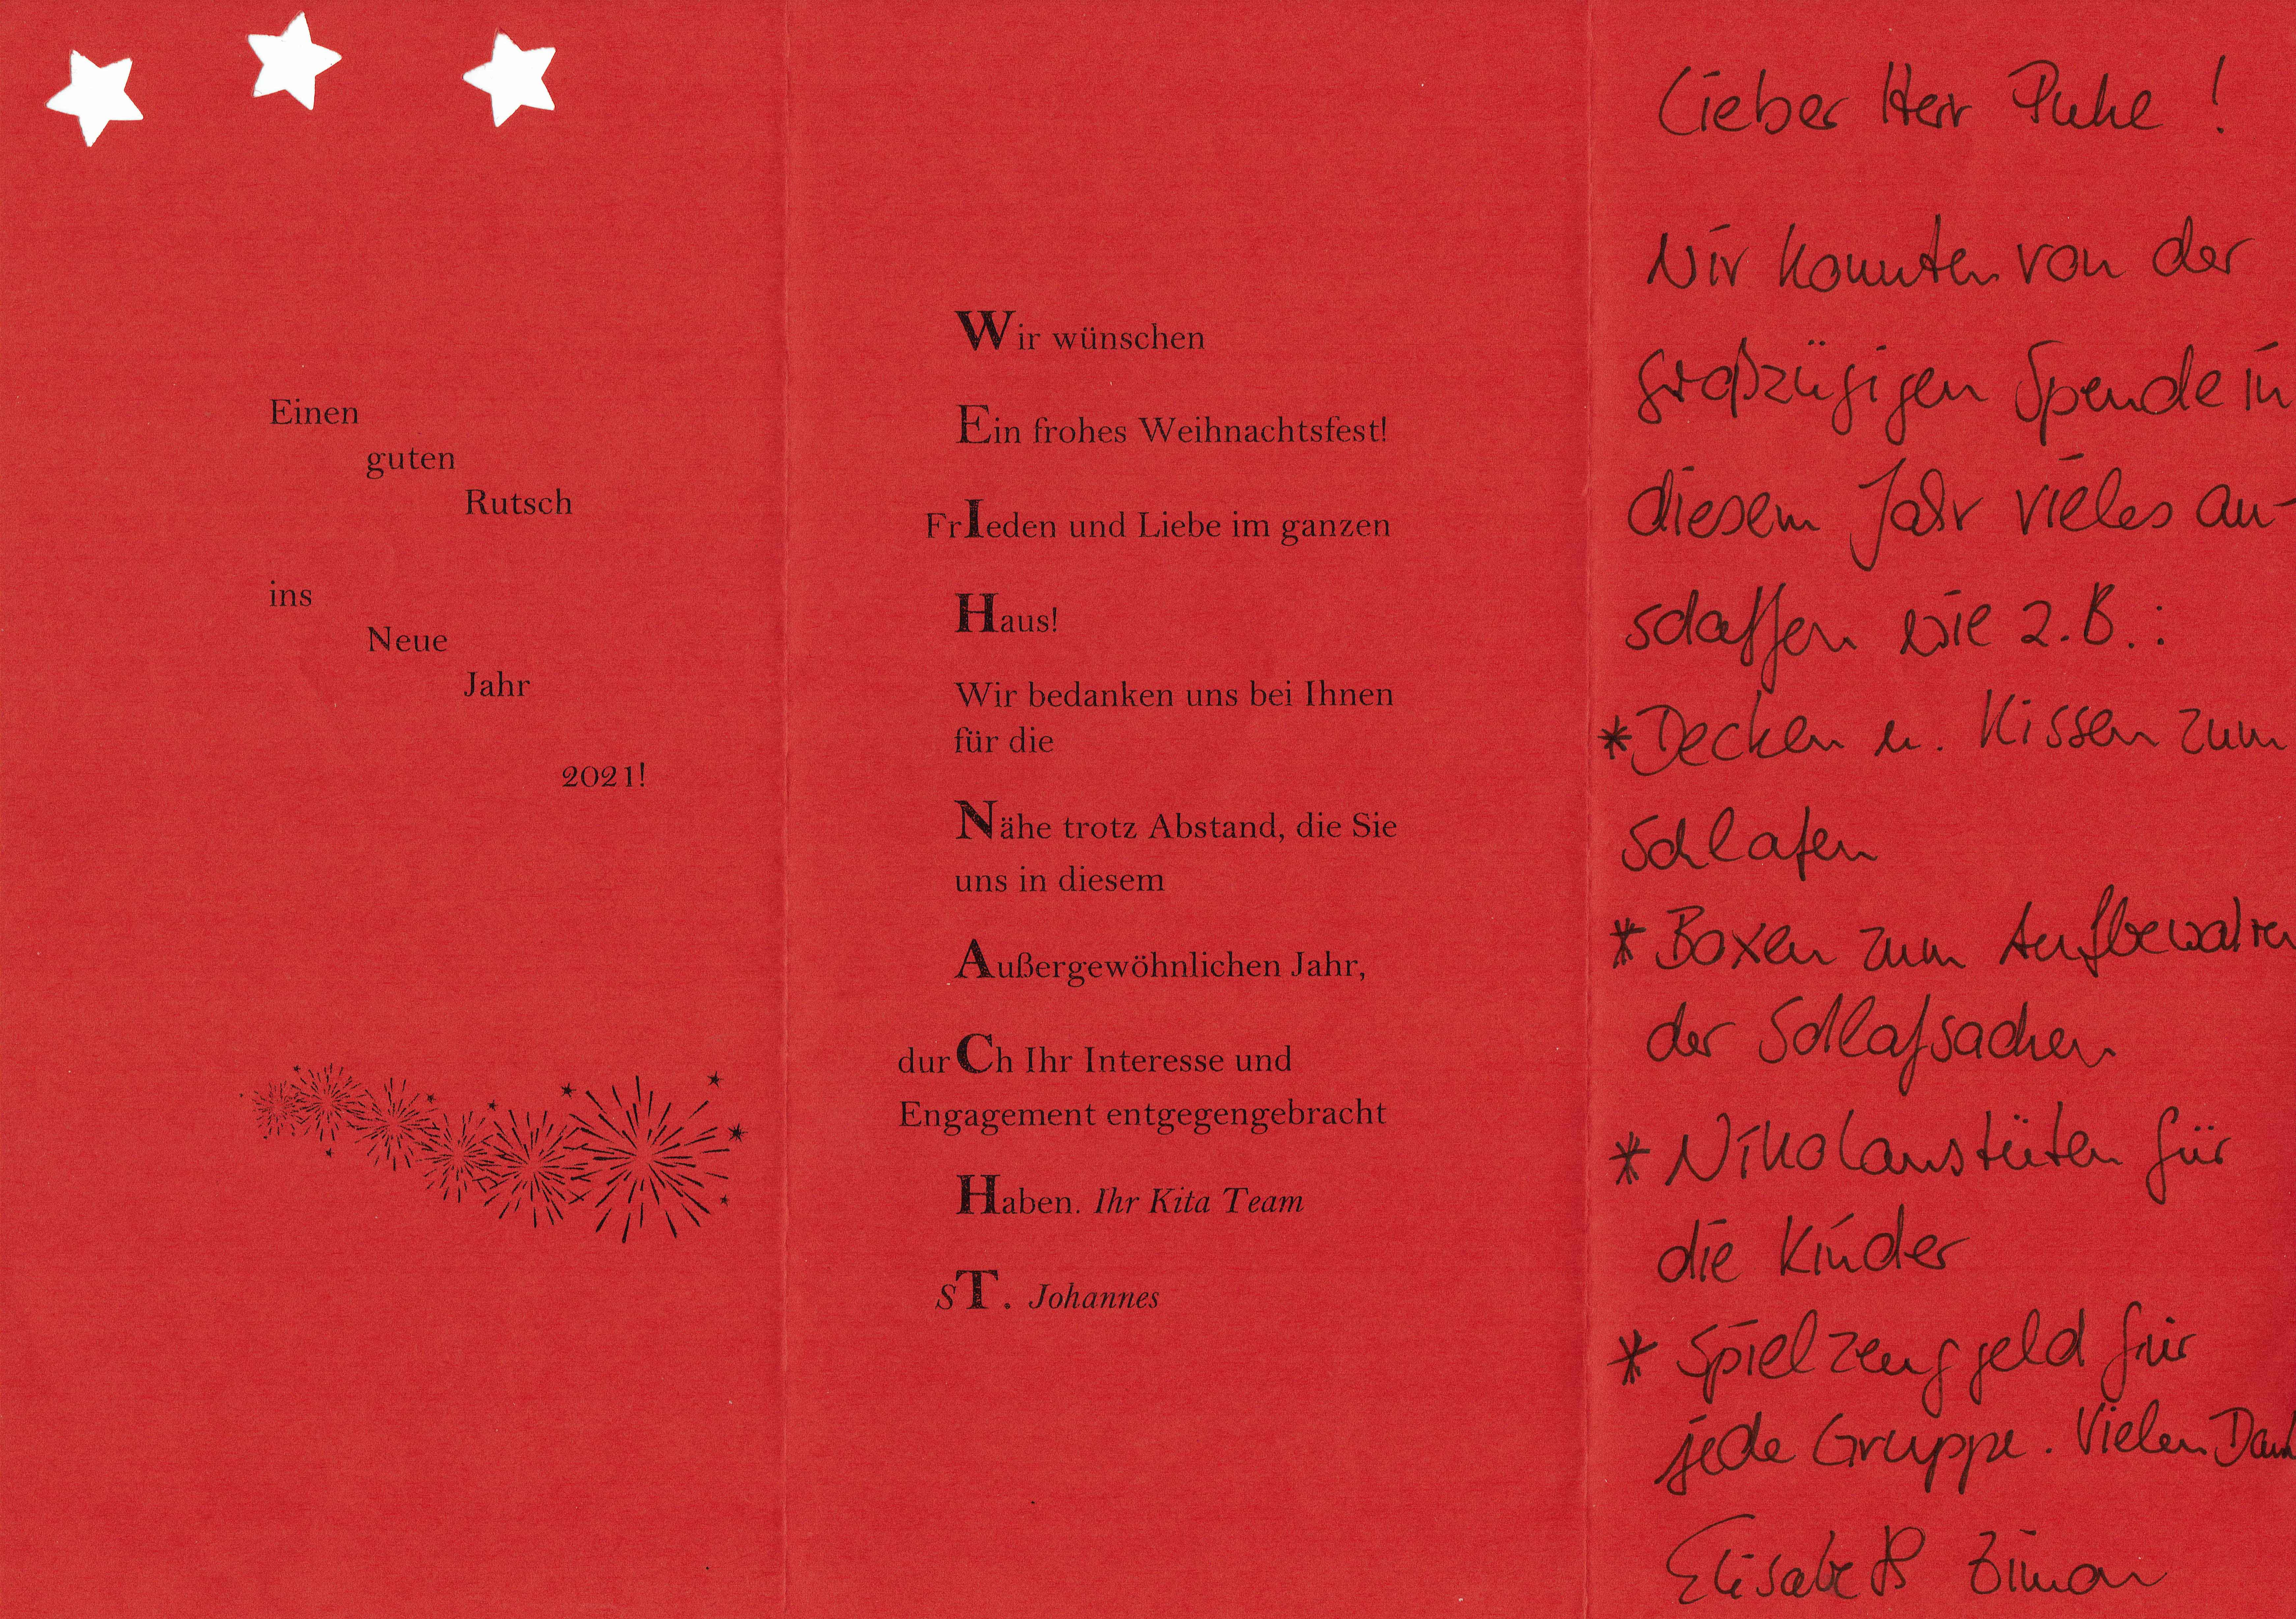 Einen
guten
Rutsch
ins
Neue
Jahr
2021!
Wir wünschen
Ein frohes Weihnachtsfest!
FrIeden und Liebe im ganzen
Haus!
Wir bedanken uns bei Ihnen
für die
Nähe trotz Abstand, die Sie
uns in diesem
Außergewöhnlichen Jahr,
durCh Ihr Interesse und
Engagement entgegengebracht
Haben. Ihr Kita Team
sT. Johannes
Lieber Herr Puhe !
Wir konnten von der
großzügigen Spende in
diesem Jahr vieles an-
schaffen wie z.B.:
* Decken u. Kissen zum
Schlafen
* Boxen zum Aufbewahren
der Schlafsachen
* Nikolaustüten für
die Kinder
* Spielzeuggeld für
jede Gruppe. Vielen Dank
Elisabeth